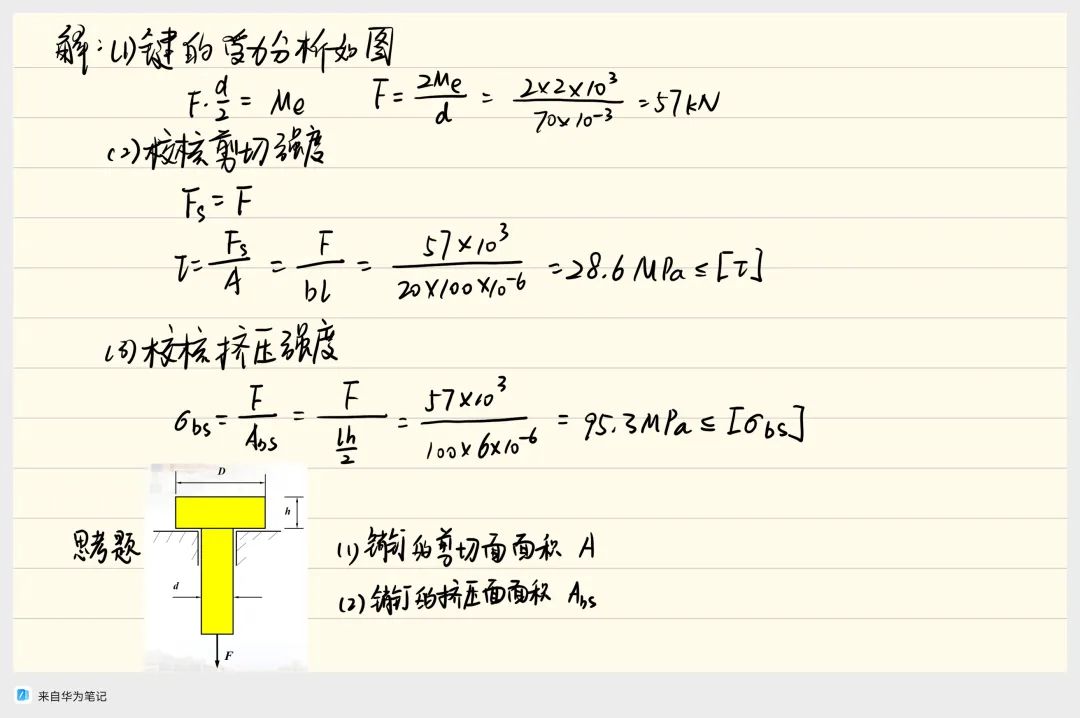 解：(1)键的受力分析如图
F·d/2 = Me F = 2Me/d = 2×2×10³/70×10⁻³ = 57kN
(2)校核剪切强度
Fs = F
τ = Fs/A = F/bl = 57×10³/20×100×10⁻⁶ = 28.6MPa ≤ [τ]
(3)校核挤压强度
σbs = F/Abs = F/(lh/2) = 57×10³/100×6×10⁻⁶ = 95.3MPa ≤ [σbs]
D
h
思考题
(1)销钉的剪切面面积 A
d
(2)销钉的挤压面面积 Abs
F
来自华为笔记